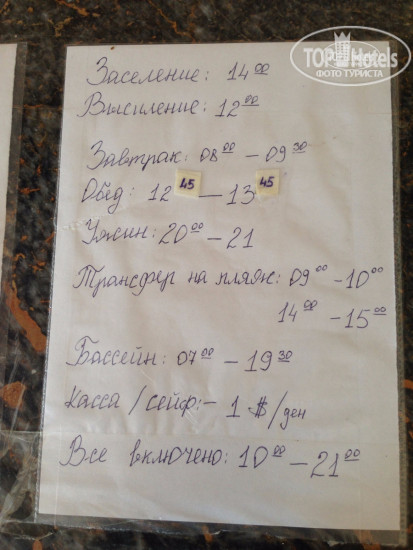 TOP Hotels
ФОТО ТУРИСТА
Заселение: 14 00
Высиление: 12 00
Завтрак: 08 00 – 09 30
Обед: 12 45 – 13 45
Ужин: 20 00 – 21
Трансфер на пляж: 09 00 – 10 00
14 00 – 15 00
Бассейн: 07 00 – 19 30
Касса / сейф: – 1 $ / ден
Все включено: 10 00 – 21 00